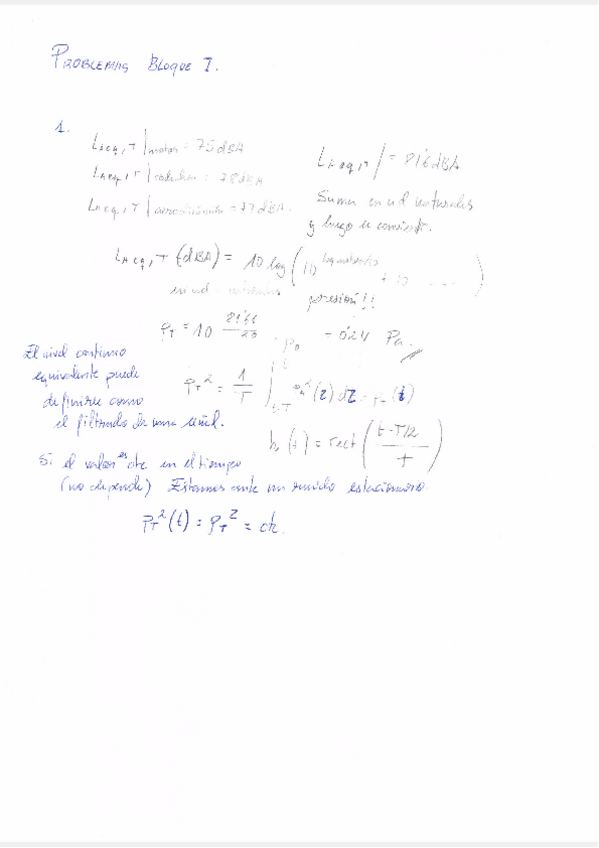 PROBLEMAS BLOQUE I.
1.
LAeq,T | motor = 75 dBA
LAeq,T | = 81'6 dBA
LAeq,T | rodadura = 78 dBA
LAeq,T | aerodinámico = 77 dBA.
Suma en ud naturales
y luego se convierte.
LAeq,T (dBA) = 10 log ( 10 + 10 .... )
en ud. naturales
presión!!
PT = 10 81'61 / 20 · P0 = 0'24 Pa.
El nivel continuo
equivalente puede
definirse como
el filtrado de una señal.
PT² = 1/T ∫ t-T t (τ) dτ (t)
h (t) = rect ( t-T/2 / T )
Si el valor es cte en el tiempo
(no depende) Estamos ante un ruido estacionario.
PT²(t) = PT² = cte.